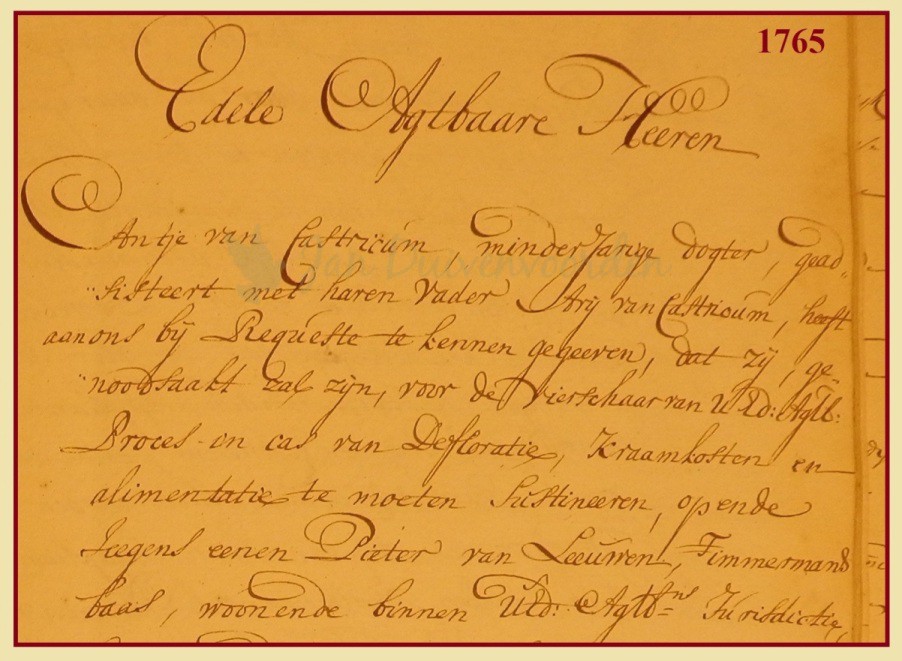 1765
Edele Agtbaare Heeren
Antje van Castricum, minderjarige dogter, gead„
„sisteert met haren vader Arij van Castricum, heeft
aan ons bij Requeste te kennen gegeeven, dat zij, ge„
„noodsaakt zal zijn, voor de Vierschaar van U Ed: Agtb:
Proces in cas van Defloratie, Kraamkosten en
alimentatie te moeten Sustineeren, op ende
Jeegens eenen Pieter van Leeuwen, Timmermans
baas, woonende binnen UEd: Agtb:ns Jurisdictie,